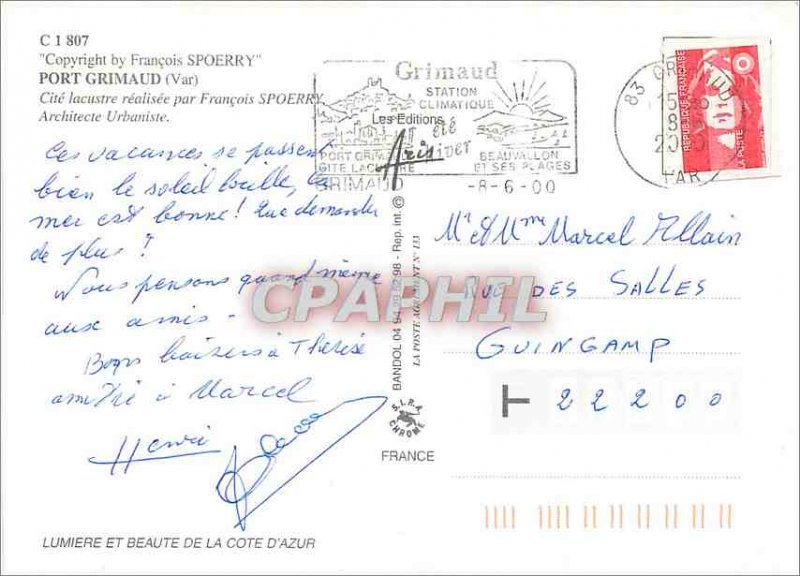 C 1 807
"Copyright by François SPOERRY"
PORT GRIMAUD (Var)
Cité lacustre réalisée par François SPOERRY
Architecte Urbaniste.
Ces vacances se passent
bien le soleil brille, la
mer est bonne! Que demander
de plus?
Nous pensons quand même
aux amis -
Bons baisers à Thérèse
amitié à Marcel
Henri
LUMIERE ET BEAUTE DE LA COTE D'AZUR
Grimaud
STATION
CLIMATIQUE
été
hiver
PORT GRIMAUD
CITE LACUSTRE
BEAUVALLON
ET SES PLAGES
GRIMAUD -8-6-00
Les Editions
Aris
BANDOL 04 94 29 52 98 - Rep. int. ©
LA POSTE AGREMENT N° 133
S.I.R.A
CHROME
FRANCE
83 GRIMAUD
VAR
REPUBLIQUE FRANÇAISE
LA POSTE
Mr et Mme Marcel Allain
RUE DES SALLES
GUINGAMP
22200
CPAPHIL